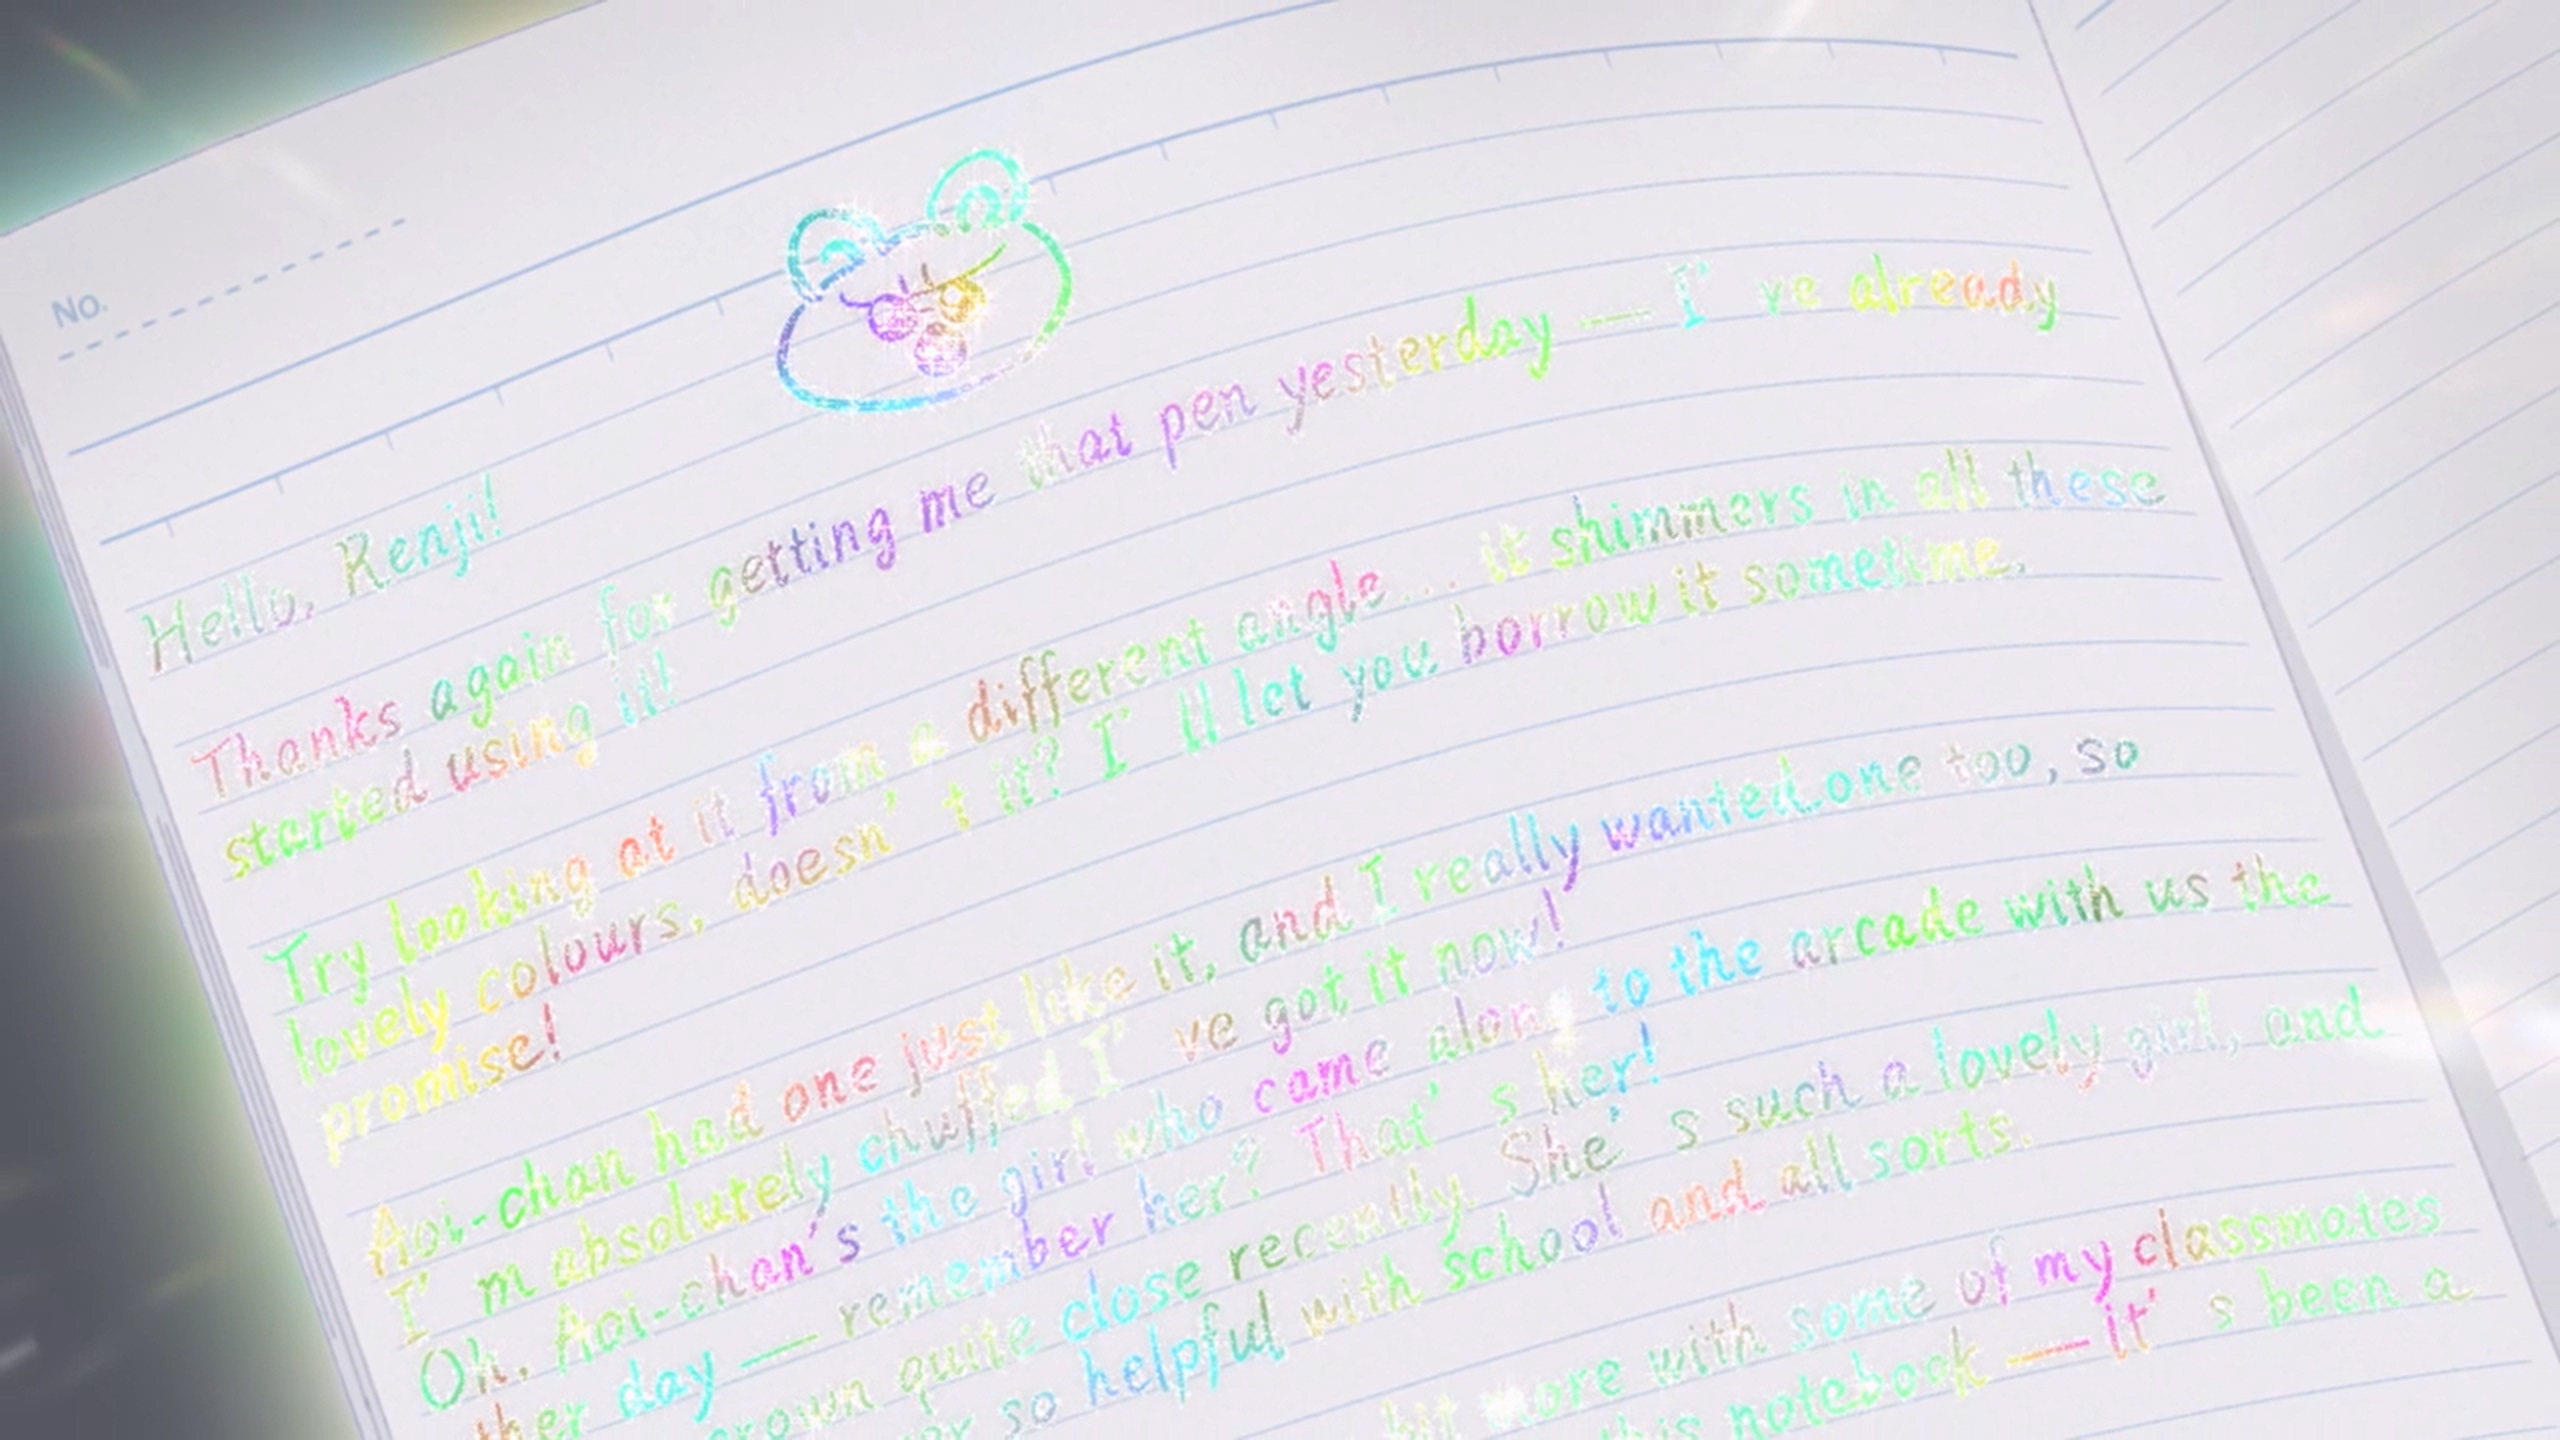 No.
Hello, Renji!
Thanks again for getting me that pen yesterday — I've already
started using it!
Try looking at it from a different angle... it shimmers in all these
lovely colours, doesn't it? I'll let you borrow it sometime,
promise!
Aoi-chan had one just like it, and I really wanted one too, so
I'm absolutely chuffed I've got it now!
Oh, Aoi-chan's the girl who came along to the arcade with us the
ther day — remember her? That's her!
grown quite close recently. She's such a lovely girl, and
so helpful with school and all sorts.
bit more with some of my classmates
this notebook — it's been a